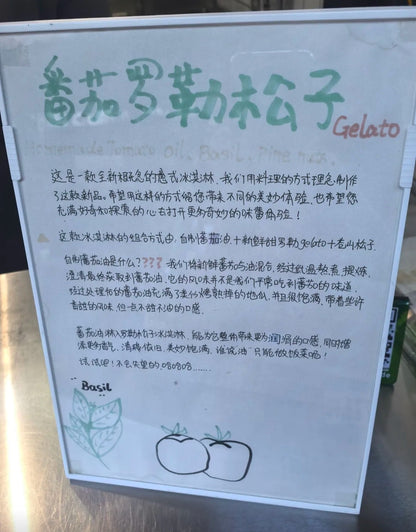 番茄罗勒松子
Gelato
Homemade Tomato Oil, Basil, Pine nuts.
这是一款全新概念的意式冰淇淋，我们用料理的方式理念制作
了这款新品。希望用这样的方式给您带来不同的美妙体验，也希望您
充满好奇和探索的心去打开更多奇妙的味蕾体验！
这款冰淇淋的组合方式由：自制番茄油＋新鲜甜罗勒gelato＋松子
自制番茄油是什么？？？ 我们将新鲜番茄与油混合，经过低温熬煮，提炼，
澄清最终获取到番茄油，它的风味并不是我们平常吃到番茄的味道，
经过处理后的番茄油充满了柔什燃熟掉的，并且很饱满，带着些许
的风味，但一点不的口感。
番茄油淋入罗勒松子冰淇淋，能为它整体带来更为润滑的口感，同时增
添更多香气，清爽依旧，美妙饱满，谁说油只能做饭菜呢！
试试吧！不会失望的 080808......
Basil